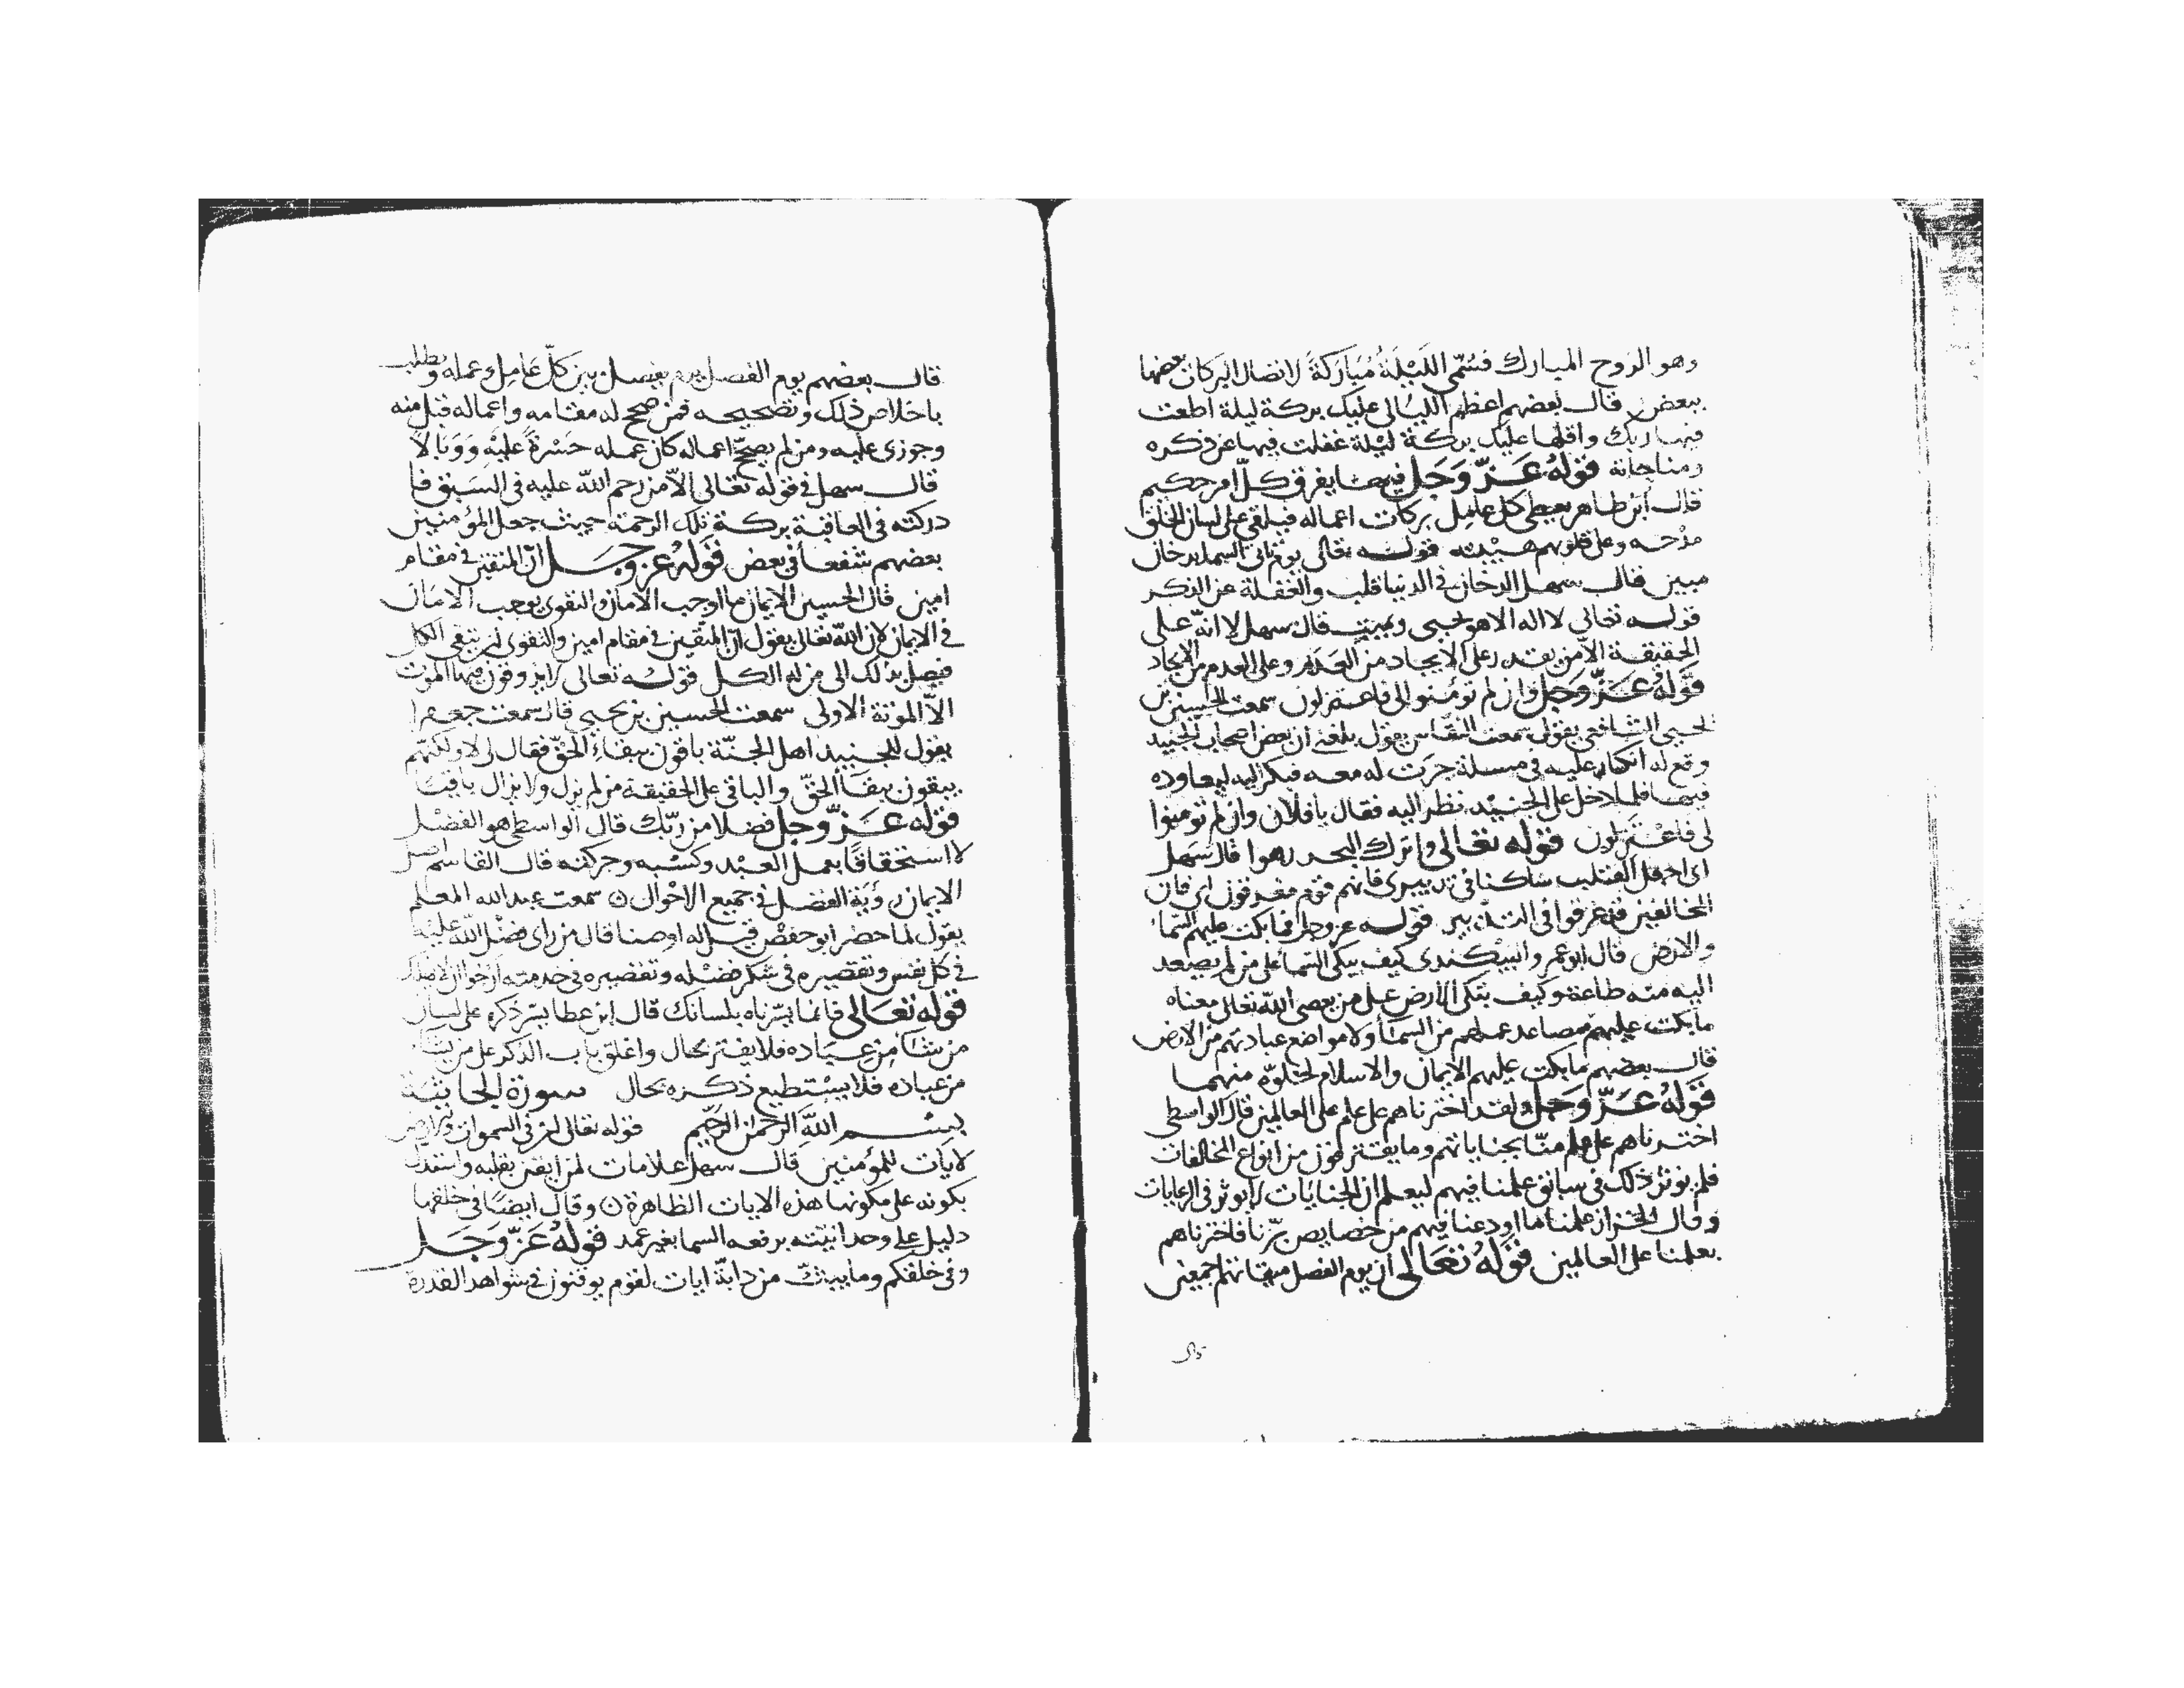 وهو الروح المبارك فسُمّي اللَيْلَةُ مُبَارَكَةً لاتصال البركات بعضها
ببعض قال بعضهم اعظم الليالى عليك بركة ليلة اطعت
فيها ربك واقلها عليك بركة ليْلة غفلت فيها عن ذكره
ومناجاته قولهُ عَزّ وَجَل فيها يفرق كلّ امر حكيم
قال ابن طاهر يعطى كل عامل بركات اعماله فيلقى على لسان الخلق
مدْحه وعلى قلوبهم هيْبته قوله تعالى يوم تاتى السما بدخان
مبين قال سهل الدخان فى الدنيا قلب والغفلة عن الذكر
قوله تعالى لا اله الا هو يحيى ويميت قال سهل لا انّه على
الحقيقة الّا من يقدر على الايجاد من العَدَم وعلى العدم من الايجاد
قَولهُ عَزّ وَجَل وان لم تؤمنوا لى فاعتزلون سمعت الحسين بن
يحيى الشافعى يقول سمعت يقول بلغنى ان بعض اصحاب الجنيد
وقع له انكار عليه فى مسلة جرَت له معه فبكر اليه ليعاوده
فيها فلما دخل على الجنيْد نظر اليه فقال يا فلان وان لم تومنوا
لى فاعْتَزلون قوله تعالى واترك البحر رهوا قال سَهل
اى اجعل القلب ساكنا فى تدبيرى فانهم قوم مغرقون اى فان
المخالفين قد غرقوا فى التدْبير قوله عز وجل فما بكت عليهم السّماء
والارض قال ابو عمرو البيْكندى كيف يبكى السّماء على من لم يصْعد
اليه منه طاعة وكيف يبكى الارض على من يعصى اللّه تعالى معناه
ما بكت عليهم مصاعد عملهم من السمآ ولا مواضع عبادتهم من الارض
قال بعضهم ما بكت عليهم الايمان والاسلام لخلوّه منهما
قَولهُ عَزّ وَجَل ولقد اخترناهم على علم على العالمين قال الواسطى
اخترناهم على علم منّا بجناياتهم وما يقترفون من انواع المخالفات
فلم يوثر ذلك فى سابق علمنا فيهم ليعلم ان الجنايات لا يوثر فى الرعايات
وقال الخزاز علمنا ما اودعنا فيهم من خصايص برّنا فاخترناهم
بعلمنا على العالمين قَولهُ تعَالى ان يوم الفصل ميقاتهم اجمعين
قال
قال بعضهم يوم الفصل يوم يفصل بين كلّ عَامِل وعمله ويطلب
باخلاص ذلك وتصحيحه فمن صح له مقامه واعماله قبل منه
وجوزى عليه ومن لم يصحّ اعماله كان عمله حَسْرةً عليْهِ وَوَبَالا
قال سهل فى قوله تعالى الّا من رحم اللّه عليه فى السَبق فا
دركته فى العاقبة بركة تلك الرحمة حيث جعل المؤمنين
بعضهم شفعاً فى بعض قَولهُ عز وجل انّ المتقين فى مقام
امين قال الحسين الايمان ما اوجب الامان والتقوى يوجب الامان
فى الايمان لان اللّه تعالى يقول انّ المتقين فى مقام امين والتقوى ان تتقى الكل
فيصل بذلك الى من له الكل قوله تعالى لا يذوقون فيها الموت
الّا الموتة الاولى سمعت الحسين بن يحيى قال سمعت جعفرا
يقول للجنيد اهل الجنّة باقون ببقاء الحقّ فقال لا ولكنهم
يبقون ببقَآ الحقّ والباقى على الحقيقة من لم يزل ولا يزال باقيا
قوله عَزّ وجل فضلا من ربّك قال الواسطى هو الفضْل
لا استحقاقًا بعمل العبْد وكسْبه وحركته قال القاسم اصل
الايمان رؤية الفضل فى جميع الاحْوال سمعت عبد الله المعلم
يقول لما حضر ابو حفص قيل له اوصنا قال من راى فضْل اللّه عليْه
فى كل نفس وتقصيره فى شكر فضْله وتقصيره فى خدمته
قوله تعَالى فانما يسّرناه بلسانك قال ابن عطا يسّر ذكره على لسان
من شَآ من عبَاده فلا يفتر بحال واغلق باب الذكر على من يشا
من عباده فلا يسْتطيع ذكره بحال سورة الجاثية
بسْم اللّه الرحمن الرّحيم قوله تعالى ان فى السموات والارض
لايَات للمؤمنين قال سهل علامات لمن ايقن بقلبه واستدل
بكونه على مكونها هذه الايات الظاهرة وقال ايضا فى خلقهما
دليل على وحدانيّته برفعه السما بغير عمد قَولهُ عَزّ وَجَل
وفى خلقكم وما يبثّ من دابة ايات لقوم يوقنون فى شواهد القدرة